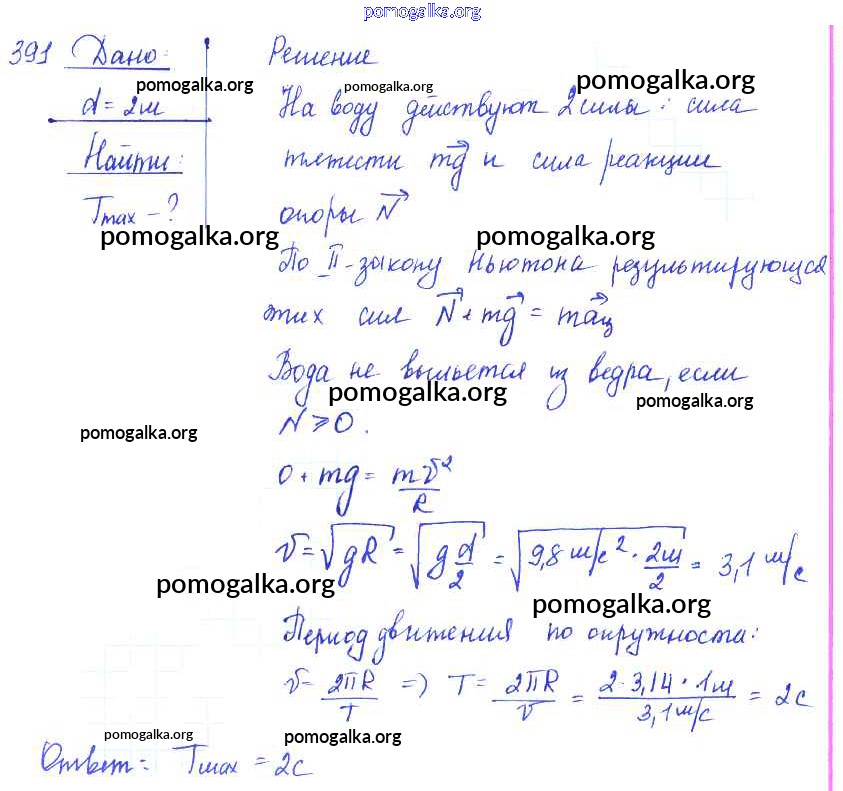 pomogalka.org
391 Дано: Решение
pomogalka.org pomogalka.org pomogalka.org
d = 2м На воду действуют 2 силы: сила
Найти: тяжести mg и сила реакции
Tmax - ? опоры N
pomogalka.org pomogalka.org
По II-закону Ньютона результирующая
этих сил N + mg = maц
Вода не выльется из ведра, если
pomogalka.org pomogalka.org
N ⩾ 0.
pomogalka.org
0 + mg = mv²/R
v = √gR = √g d/2 = √9,8 м/с² · 2м/2 = 3,1 м/с
pomogalka.org pomogalka.org
Период движения по окружности:
v = 2πR/T => T = 2πR/v = 2·3,14·1м/3,1м/с = 2с
pomogalka.org pomogalka.org
Ответ: Tmax = 2с